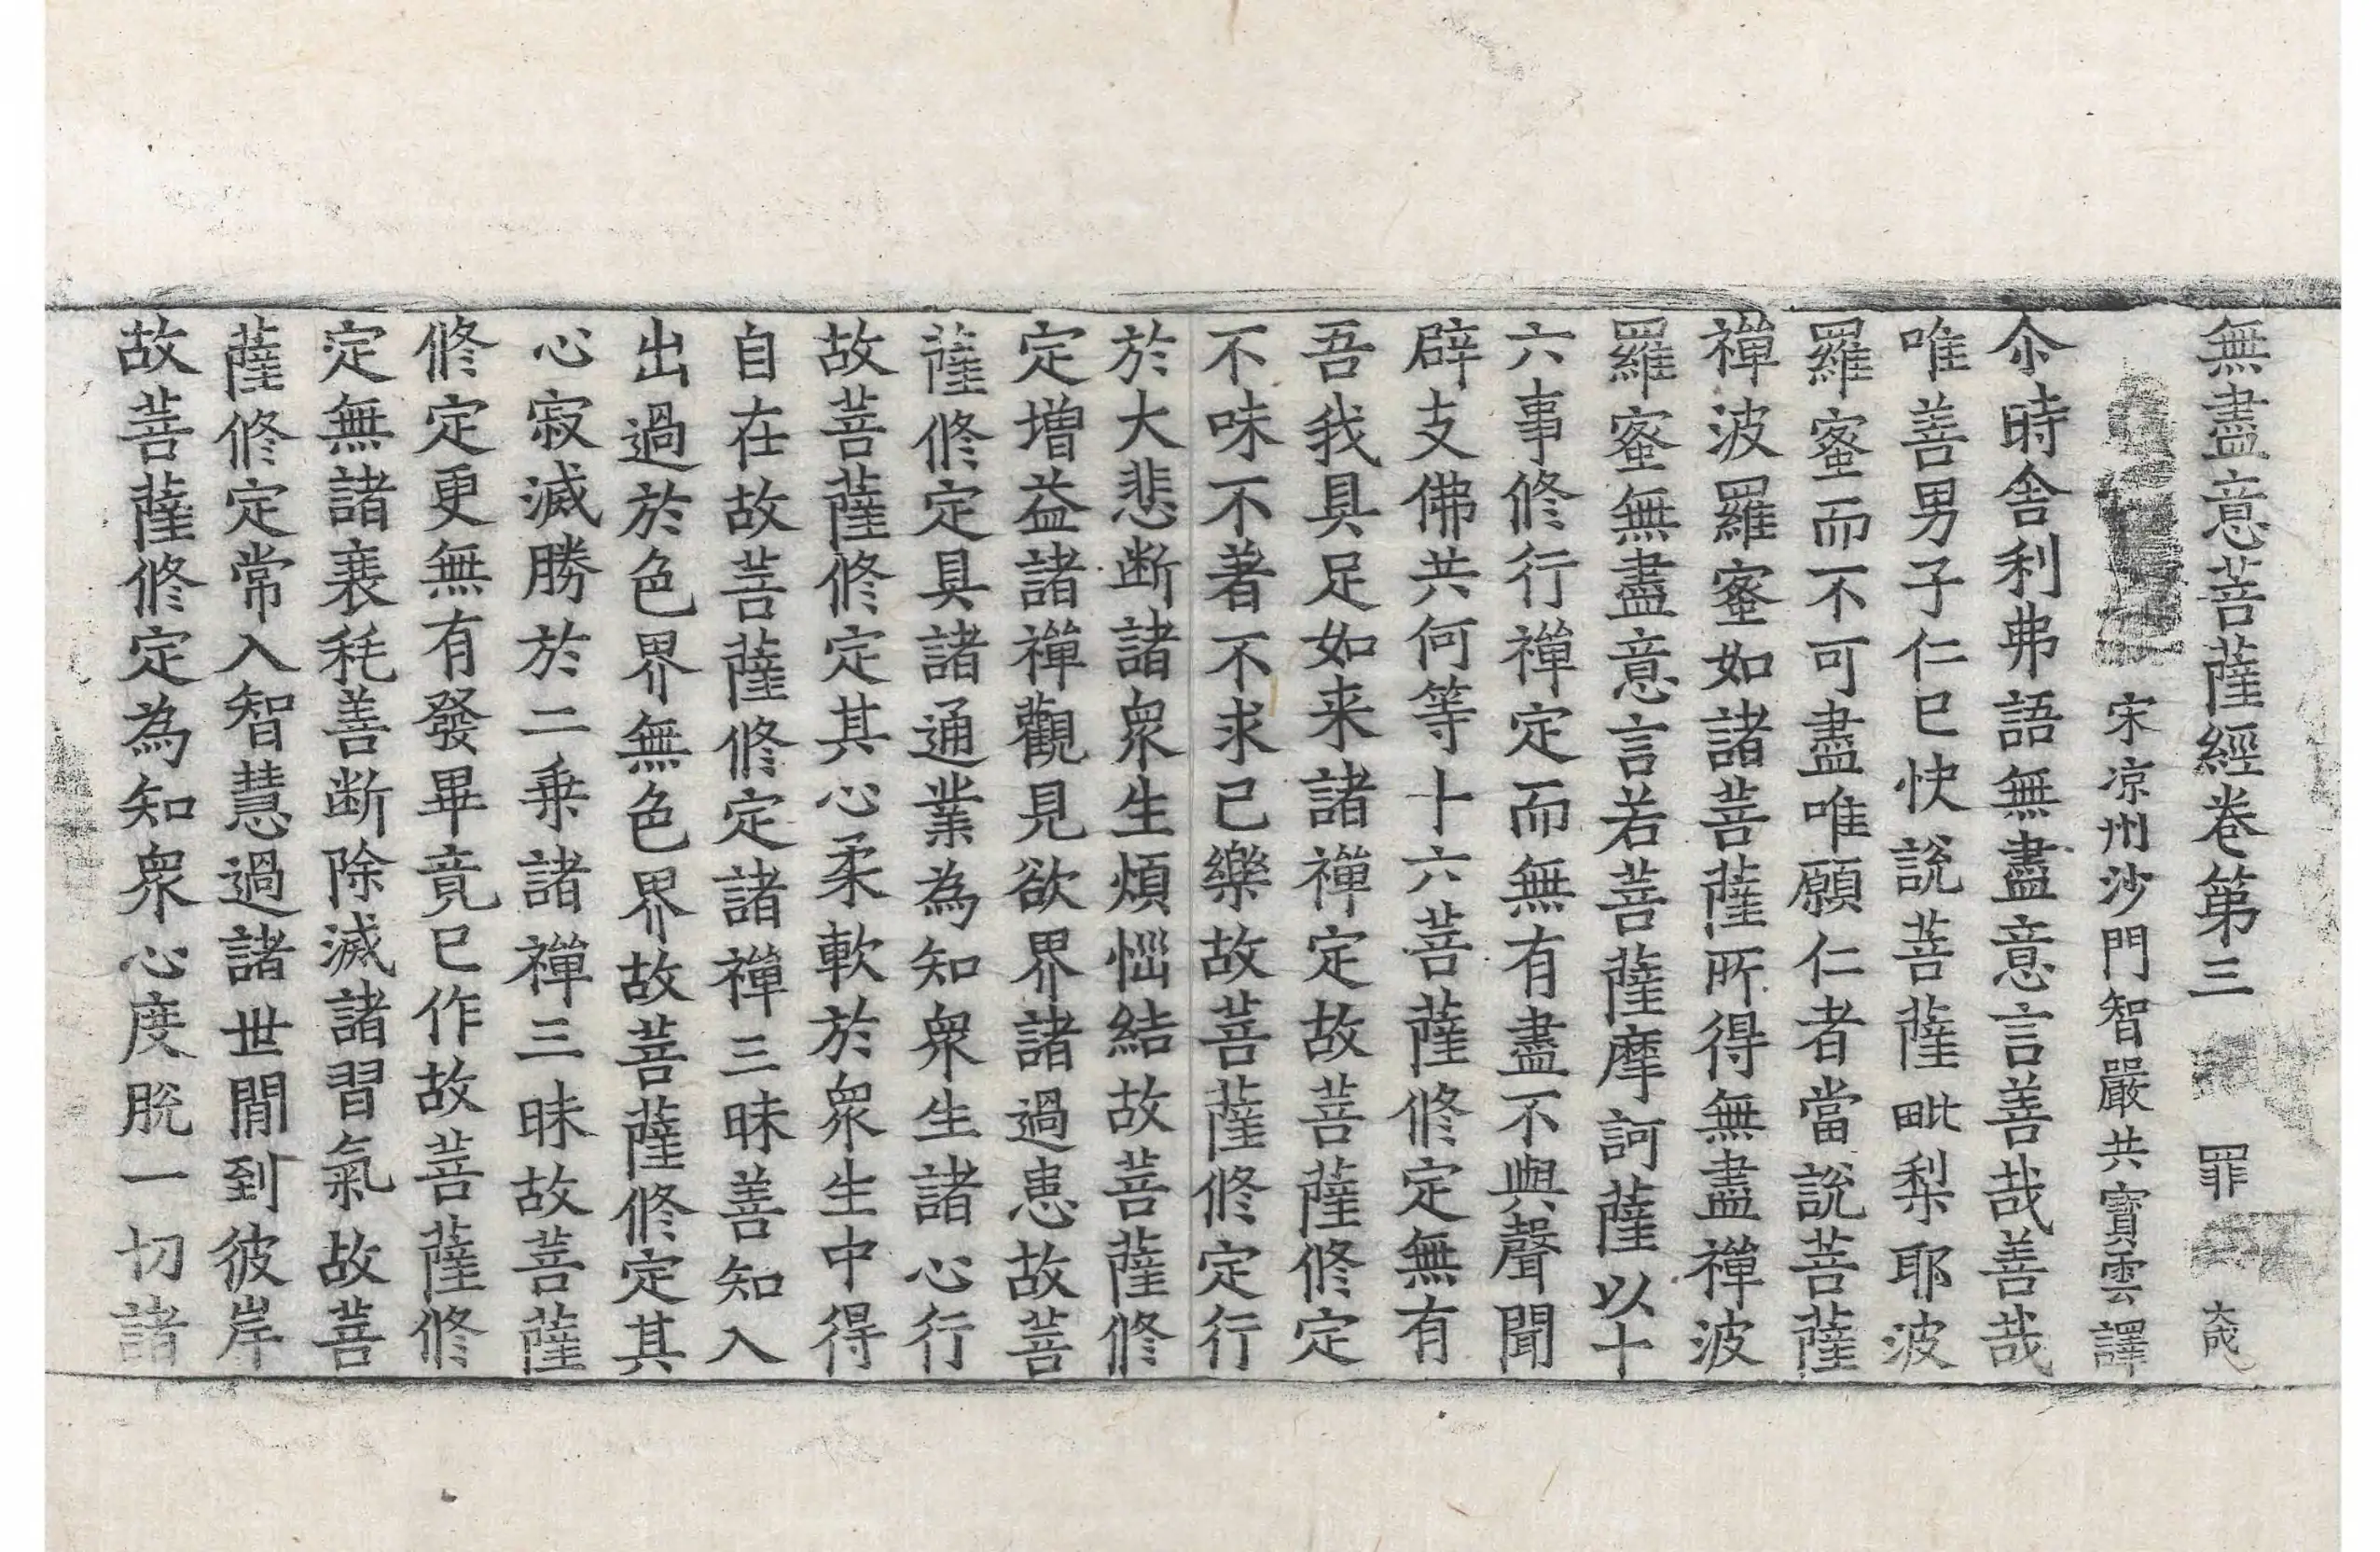 無盡意菩薩經卷第三 罪
宋涼州沙門智嚴共寶雲譯
尒時舎利弗語無盡意言善哉善哉
唯善男子仁已快說菩薩毗梨耶波
羅蜜而不可盡唯願仁者當說菩薩
禪波羅蜜如諸菩薩所得無盡禪波
羅蜜無盡意言若菩薩摩訶薩以十
六事修行禪定而無有盡不與聲聞
辟支佛共何等十六菩薩修定無有
吾我具足如来諸禪定故菩薩修定
不味不著不求己樂故菩薩修定行
於大悲断諸衆生煩惱結故菩薩修
定增益諸禪觀見欲界諸過患故菩
薩修定具諸通業為知衆生諸心行
故菩薩修定其心柔軟於衆生中得
自在故菩薩修定諸禪三昧善知入
出過於色界無色界故菩薩修定其
心寂滅勝於二乗諸禪三昧故菩薩
修定更無有發畢竟已作故菩薩修
定無諸衰耗善断除滅諸習氣故菩
薩修定常入智慧過諸世閒到彼岸
故菩薩修定為知衆心度脫一切諸